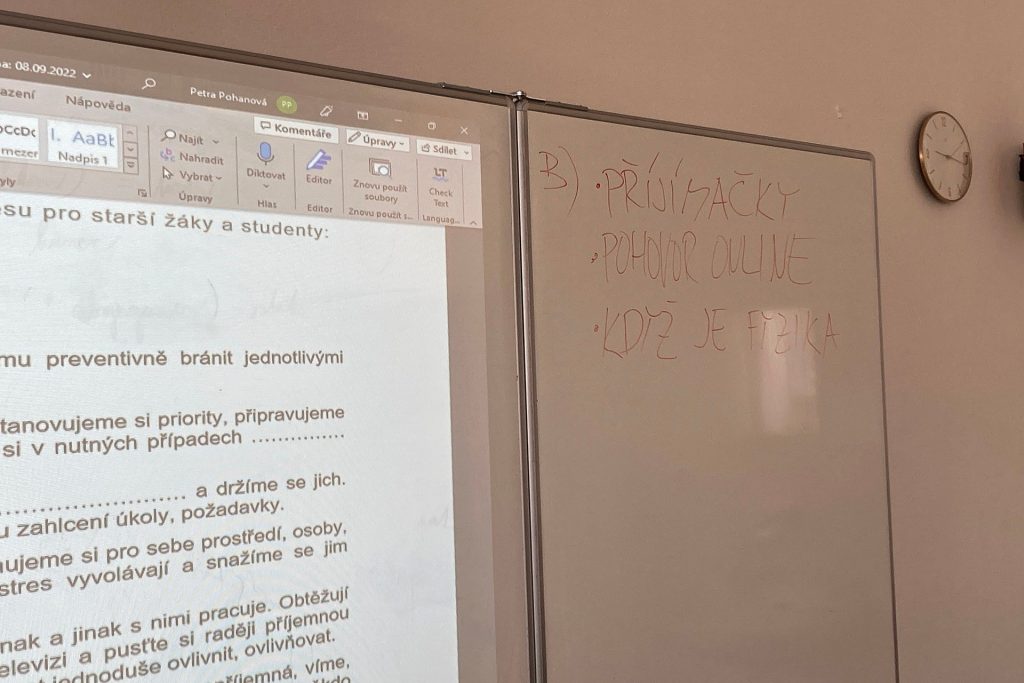 a: 08.09.2022
Petra Pohanová PP
azení Nápověda
Komentáře Úpravy Sdílet
I. AaBb
mezer Nadpis 1
Najít
Nahradit
Vybrat
Úpravy
Diktovat
Hlas
Editor
Editor
Znovu použít
soubory
Znovu použít s...
LT
Check
Text
Languag...
yly
esu pro starší žáky a studenty:
mu preventivně bránit jednotlivými
tanovujeme si priority, připravujeme
si v nutných případech ...............
........................ a držíme se jich.
u zahlcení úkoly, požadavky.
ujeme si pro sebe prostředí, osoby,
stres vyvolávají a snažíme se jim
nak a jinak s nimi pracuje. Obtěžují
elevizi a pusťte si raději příjemnou
t jednoduše ovlivnit, ovlivňovat.
příjemná, víme,
B) • PŘIJÍMAČKY
• POHOVOR ONLINE
• KDYŽ JE FYZIKA